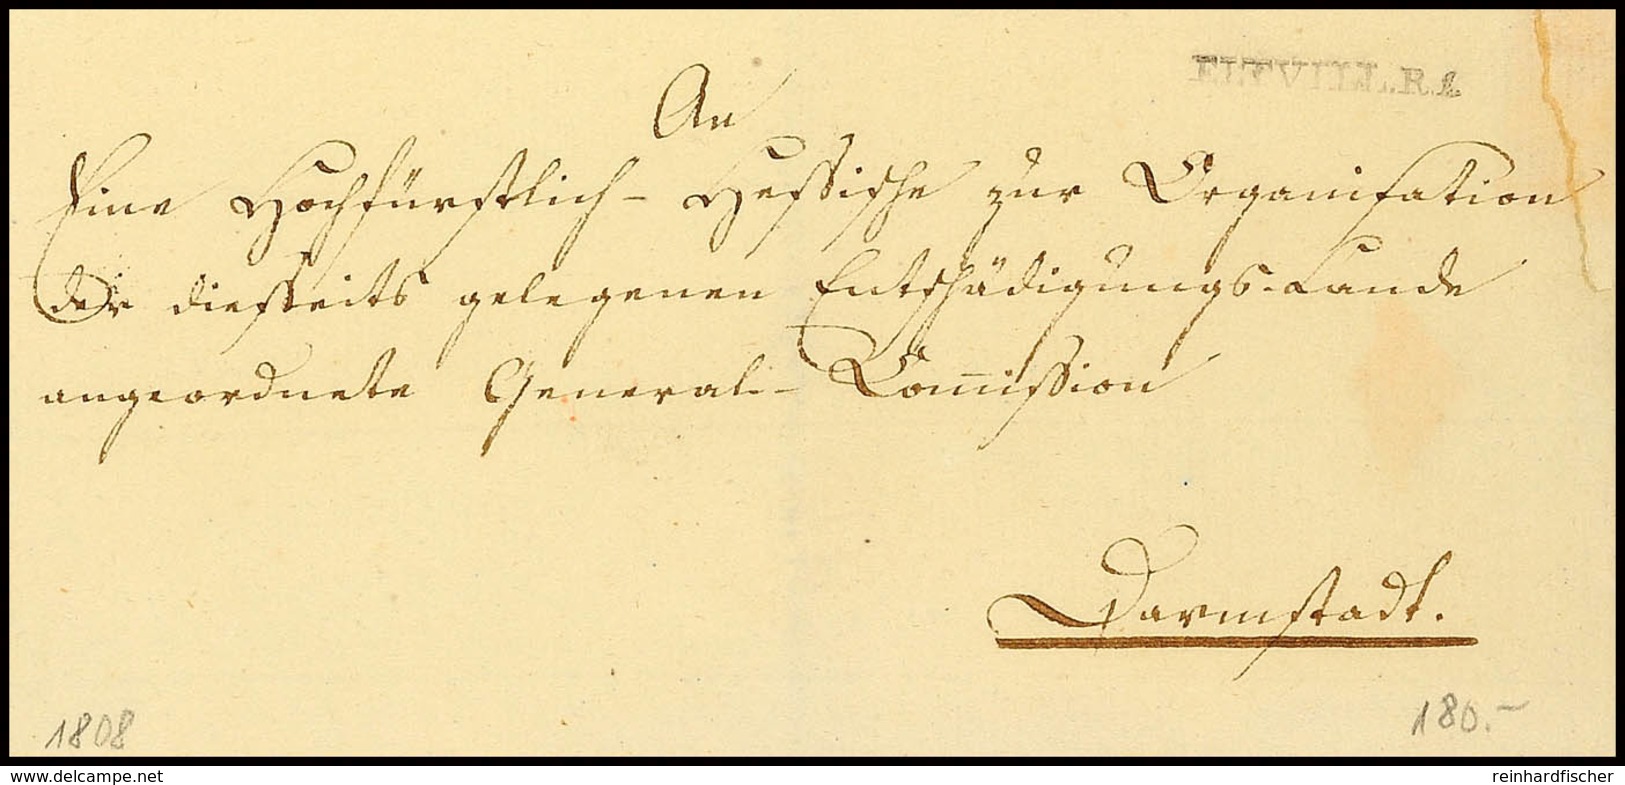 ELTVILL.R.1
An
Eine Hochfürstlich-Hessische zur Organisation
der diesseits gelegenen Entschädigungs-Lande
angeordnete General-Com̅ission
Darmstadt.
1808
180.-
www.delcampe.net
reinhardfischer